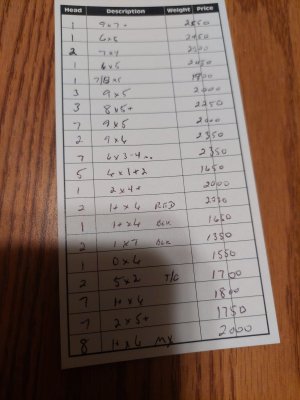 Head Description Weight Price
1 9x7+ 2550
1 6x6 2450
2 7x4 2500
1 6x5 2450
1 7/8x5 1900
3 9x5 2000
3 8x5+ 2250
7 9x5 2000
2 9x6 2350
7 6x3-4 2350
5 4x1+2 1650
1 2x4+ 2000
2 1+x4 RED
1 1+x4 BLK 1650
2 1x7 BLK 1350
1 0x4 1550
2 5x2 T/C 1700
7 1+x4 1800
7 2x5+ 1750
8 1+x4 MX 2000